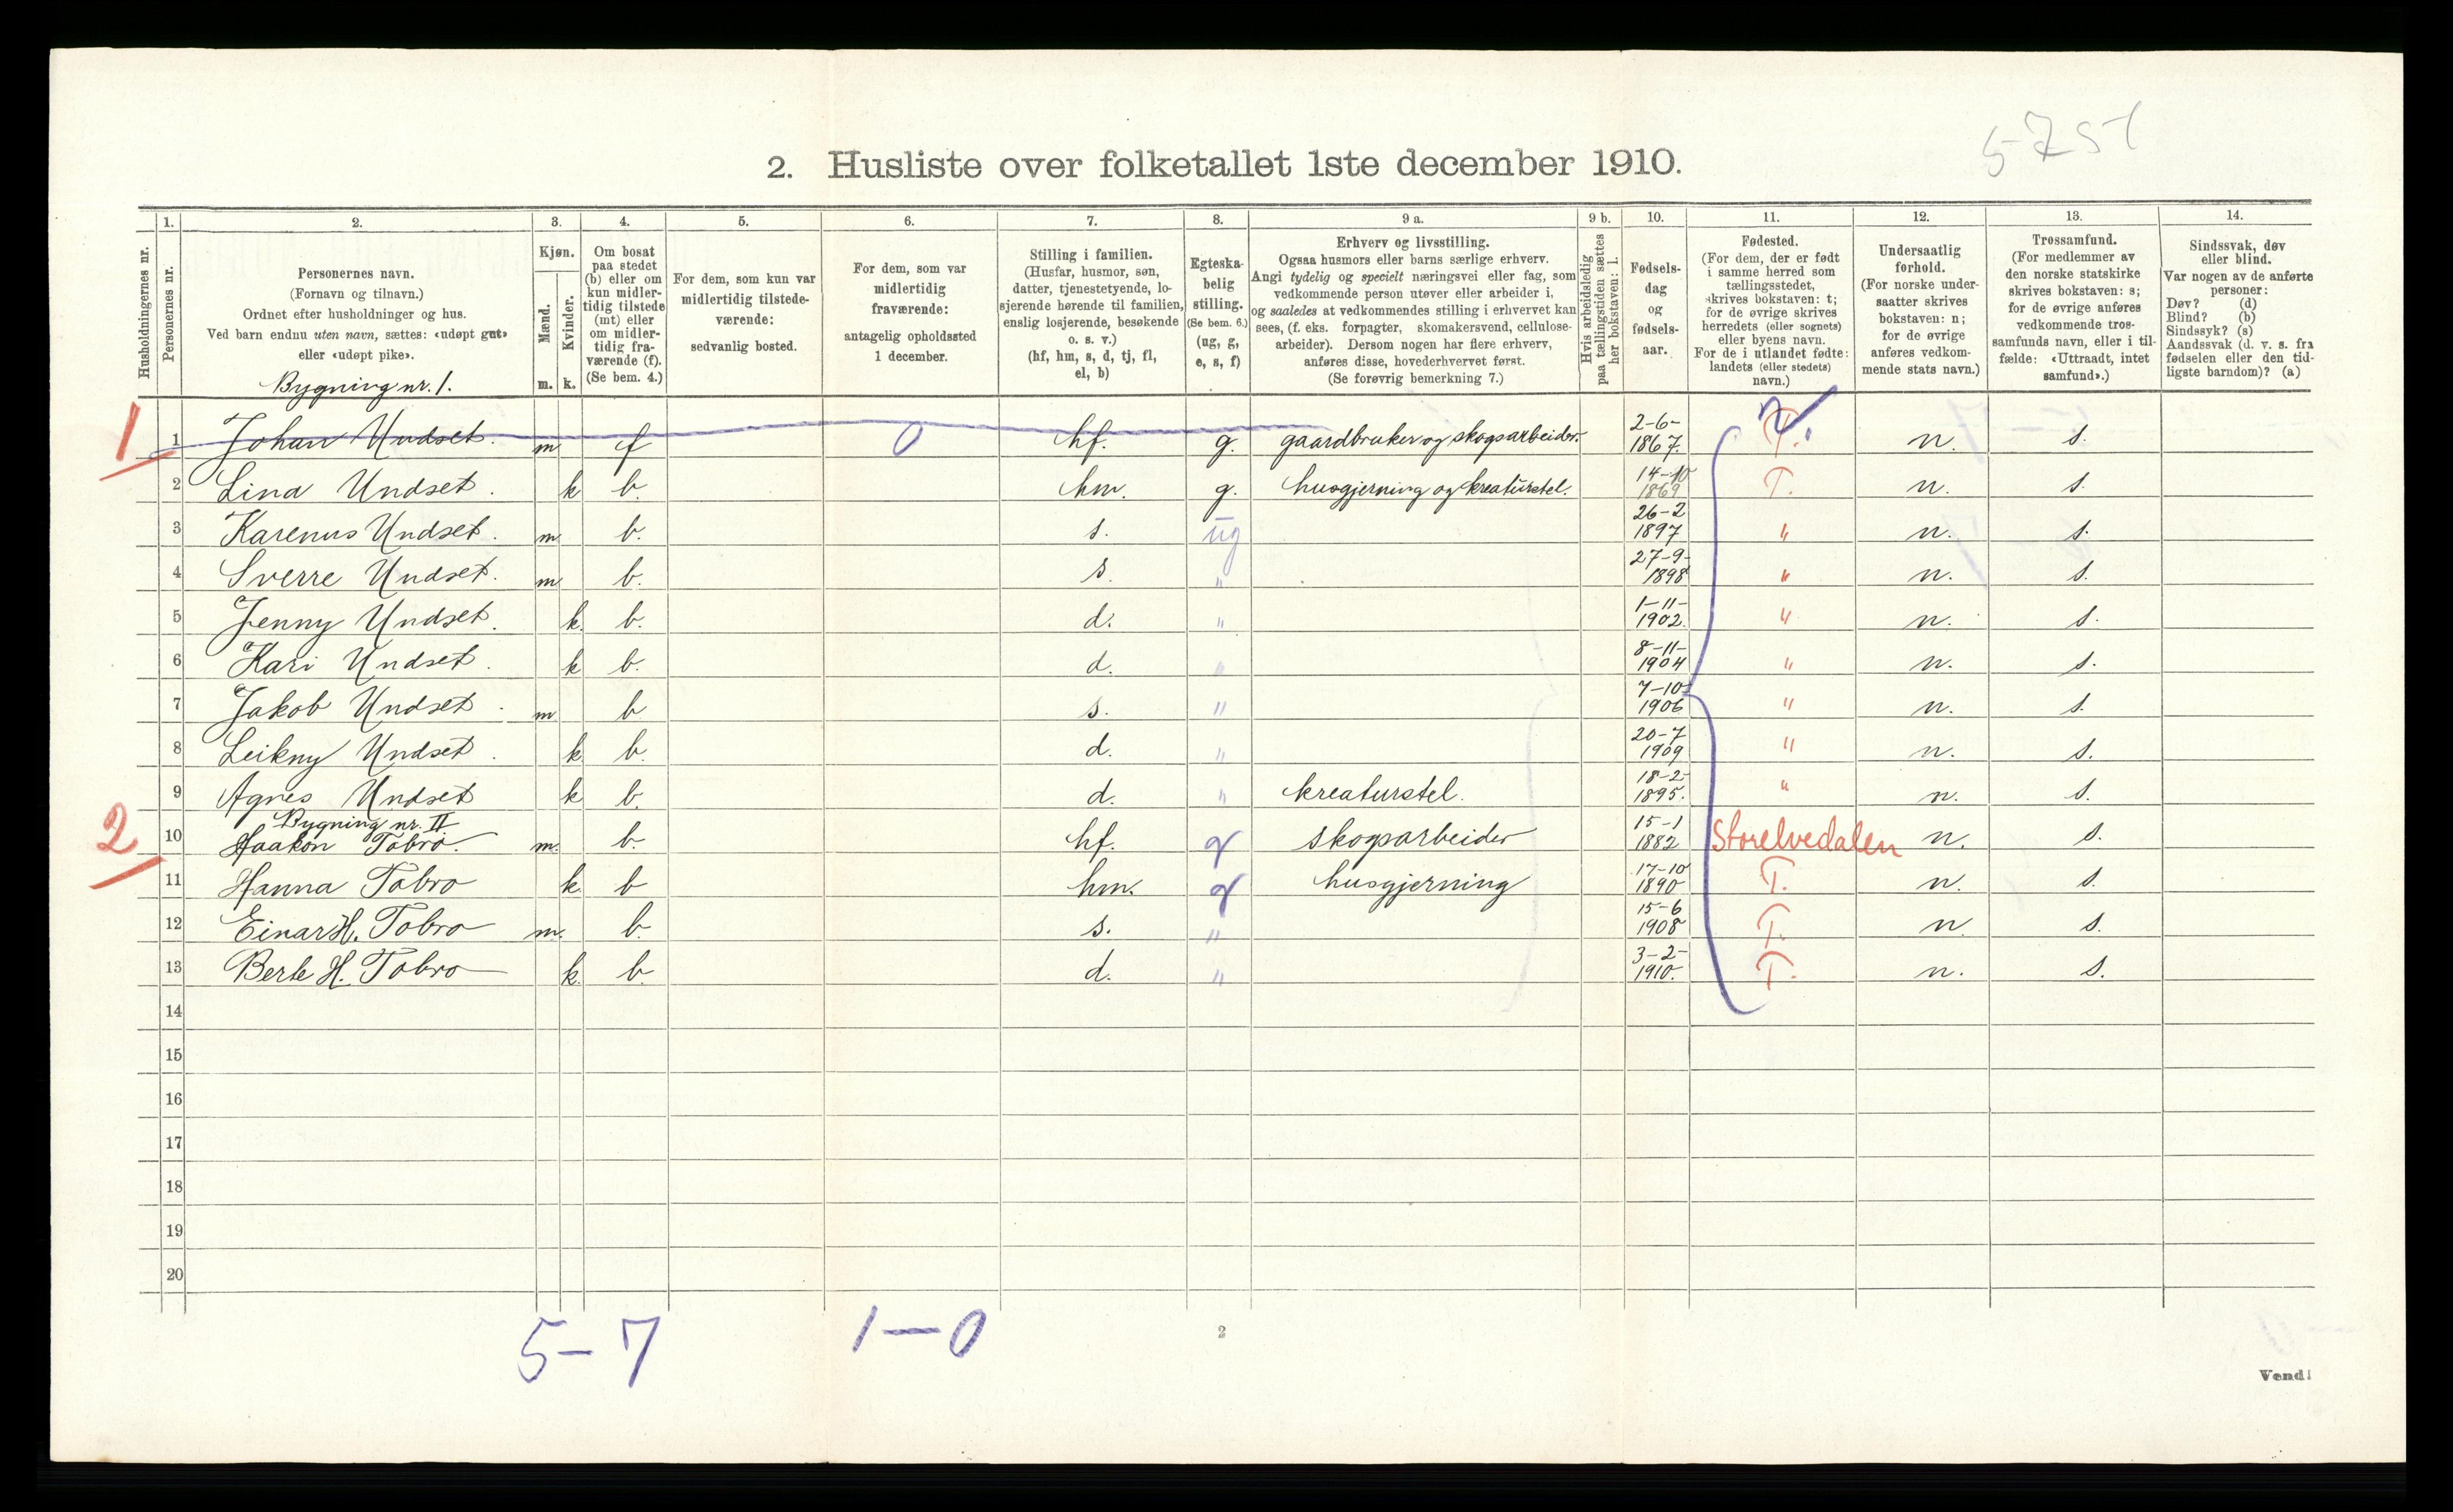 5-7 5-1
2. Husliste over folketallet 1ste december 1910.
Husholdningernes nr.
1. Personernes nr.
2. Personernes navn.
(Fornavn og tilnavn.)
Ordnet efter husholdninger og hus.
Ved barn endnu uten navn, sættes: «udøpt gut»
eller «udøpt pike».
Bygning nr. 1.
3. Kjøn.
Mænd. m.
Kvinder. k.
4. Om bosat
paa stedet
(b) eller om
kun midler-
tidig tilstede
(mt) eller
om midler-
tidig fra-
værende (f).
(Se bem. 4.)
5. For dem, som kun var
midlertidig tilstede-
værende:
sedvanlig bosted.
6. For dem, som var
midlertidig
fraværende:
antagelig opholdssted
1 december.
7. Stilling i familien.
(Husfar, husmor, søn,
datter, tjenestetyende, lo-
sjerende hørende til familien,
enslig losjerende, besøkende
o. s. v.)
(hf, hm, s, d, tj, fl,
el, b)
8. Egteska-
belig
stilling.
(Se bem. 6.)
(ug, g,
e, s, f)
9 a. Erhverv og livsstilling.
Ogsaa husmors eller barns særlige erhverv.
Angi tydelig og specielt næringsvei eller fag, som
vedkommende person utøver eller arbeider i,
og saaledes at vedkommendes stilling i erhvervet kan
sees, (f. eks. forpagter, skomakersvend, cellulose-
arbeider). Dersom nogen har flere erhverv,
anføres disse, hovederhvervet først.
(Se forøvrig bemerkning 7.)
9 b. Hvis arbeidsledig
paa tællingstiden sættes
her bokstaven: l.
10. Fødsels-
dag
og
fødsels-
aar.
11. Fødested.
(For dem, der er født
i samme herred som
tællingsstedet,
skrives bokstaven: t;
for de øvrige skrives
herredets (eller sognets)
eller byens navn.
For de i utlandet fødte:
landets (eller stedets)
navn.)
12. Undersaatlig
forhold.
(For norske under-
saatter skrives
bokstaven: n;
for de øvrige
anføres vedkom-
mende stats navn.)
13. Trossamfund.
(For medlemmer av
den norske statskirke
skrives bokstaven: s;
for de øvrige anføres
vedkommende tros-
samfunds navn, eller i til-
fælde: «Uttraadt, intet
samfund».)
14. Sindssvak, døv
eller blind.
Var nogen av de anførte
personer:
Døv? (d)
Blind? (b)
Sindssyk? (s)
Aandssvak (d. v. s. fra
fødselen eller den tid-
ligste barndom)? (a)
1 1 Johan Undset. m f 0 hf. g. gaardbruker og skogsarbeider. 2-6-1867. T. n. s.
2 Lina Undset. k b. hm. g. husgjerning og kreaturstel. 14-10 1869 T. n. s.
3 Karenus Undset. m b. s. ug 26-2 1897 " n. s.
4 Sverre Undset. m b. s. " 27-9-1898 " n. s.
5 Jenny Undset. k. b. d. " 1-11-1902. " n. s.
6 Kari Undset. k b. d. " 8-11-1904 " n. s.
7 Jakob Undset. m b s. " 7-10-1906 " n. s.
8 Leikny Undset. k b. d. " 20-7 1909 " n. s.
9 Agnes Undset k b. d. " kreaturstel. 18-2-1895. " n. s.
Bygning nr. II
2 10 Haakon Tobro. m. b. hf. g skogsarbeider 15-1 1882 Storelvedalen n. s.
11 Hanna Tobro k. b hm. g husgjerning 17-10 1890 T. n. s.
12 Einar H. Tobro m. b. s. " 15-6 1908 T. n. s.
13 Berte H. Tobro k. b. d. " 3-2-1910. T. n. s.
14
15
16
17
18
19
20
5-7 1-0
2
Vend!